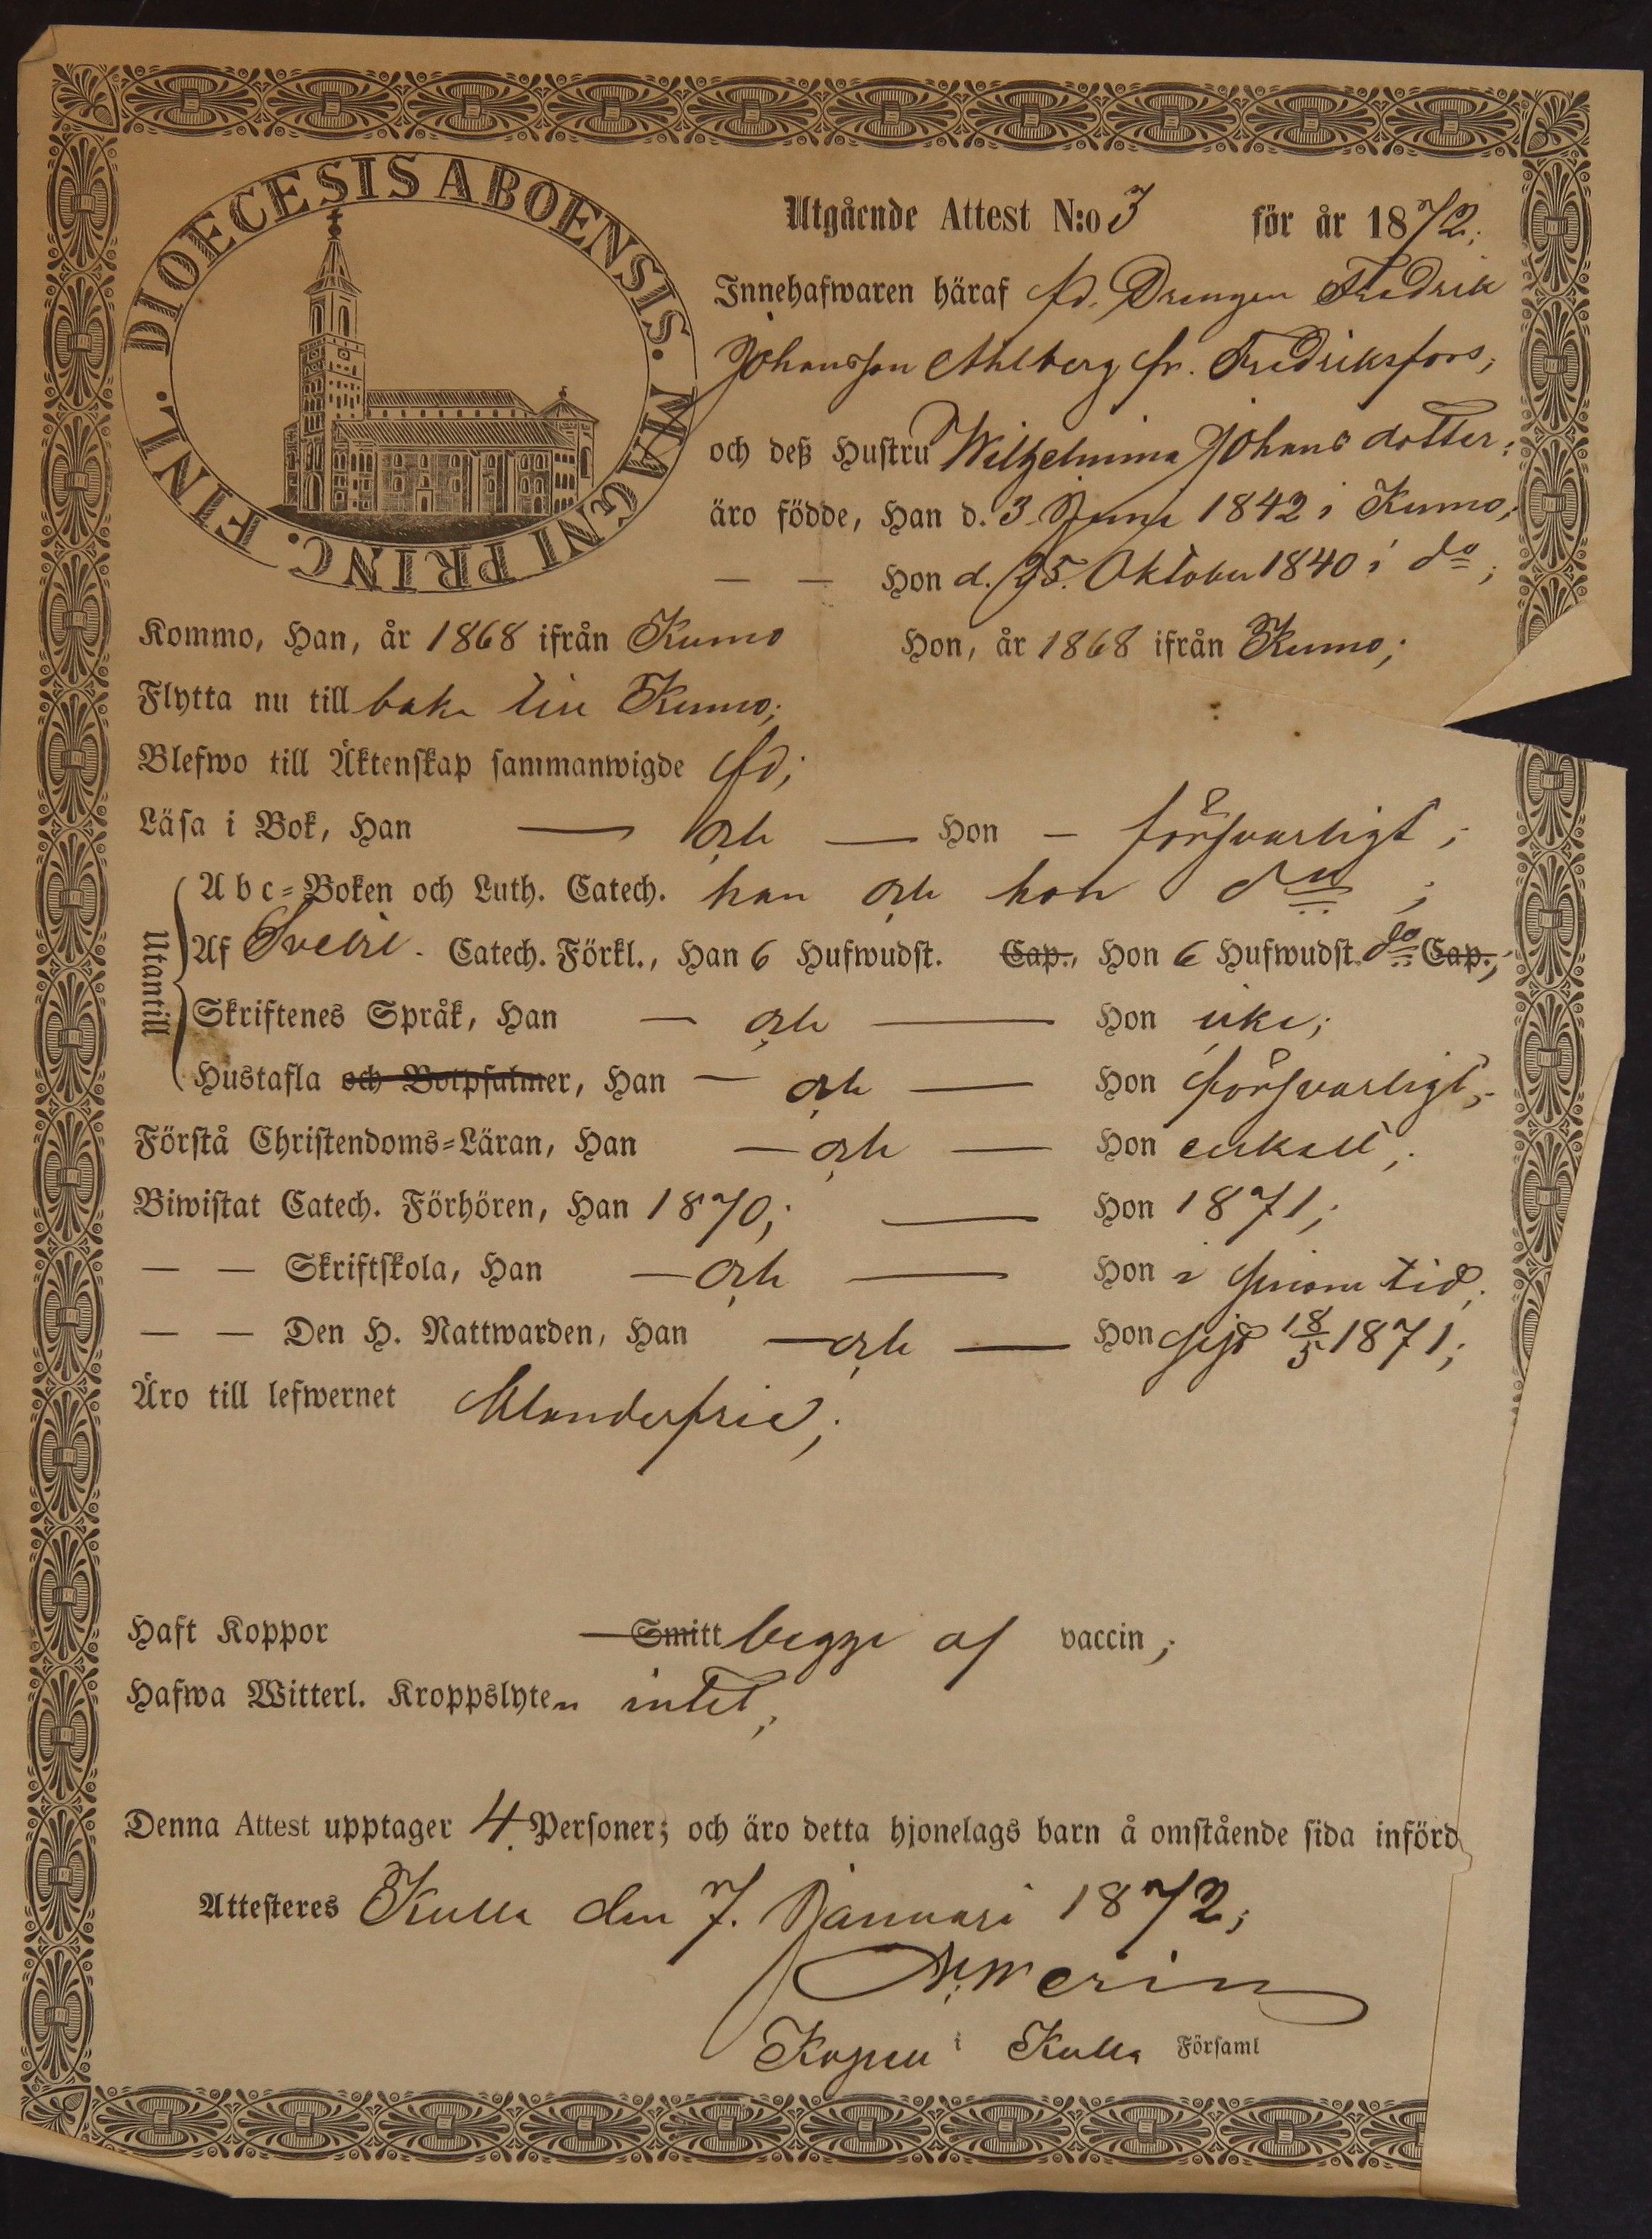 DIOECESIS ABOENSIS. MAGNI PRINC. FINL.
Utgående Attest N:o 3 för år 1872;
Innehafwaren häraf fd. Drengen Fredrik
Johansson Ahlberg fr. Fredriksfors,
och deß Hustru Wilhelmina Johans dotter;
äro födde, Han d. 3 Juni 1842 i Kumo;
— — Hon d. 25. Oktober 1840 i do;
Kommo, Han, år 1868 ifrån Kumo Hon, år 1868 ifrån Kumo;
Flytta nu till baka till Kumo;
Blefwo till Äktenskap sammanwigde fd;
Läsa i Bok, Han — och — Hon — försvarligt;
Utantill
Abc-Boken och Luth. Catech. han och hon do;
Af Svebil. Catech. Förkl., Han 6 Hufwudst. Cap., Hon 6 Hufwudst. do Cap.;
Skriftenes Språk, Han — och — Hon icke;
Hustafla och Botpsalmer, Han — och — Hon försvarligt;
Förstå Christendoms-Läran, Han — och — Hon enkelt;
Biwistat Catech. Förhören, Han 1870; — Hon 1871;
— — Skriftskola, Han — och — Hon i sinom tid;
— — Den H. Nattwarden, Han — och — Hon sist 18/5 1871;
Äro till lefwernet klanderfrie;
Haft Koppor — Smitt begge af vaccin;
Hafwa Witterl. Kroppslyten intet;
Denna Attest upptager 4 Personer; och äro detta hjonelags barn å omstående sida införd
Attesteres Kulla den 7. Januari 1872;
i Kulla Församl